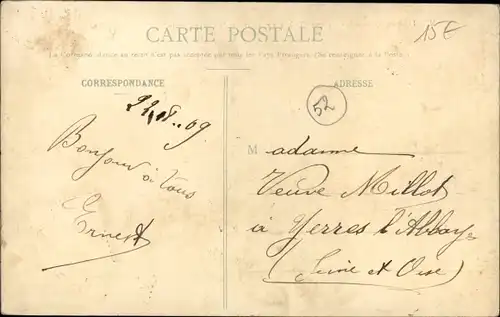 CARTE POSTALE
15E
La Correspondance au recto n'est pas acceptée par tous les Pays Etrangers. (Se renseigner à la Poste)
CORRESPONDANCE
ADRESSE
09
52
Bonjour
à tous
Ernest
Madame
Veuve Millot
à Yerres l'Abbaye
(Seine et Oise)